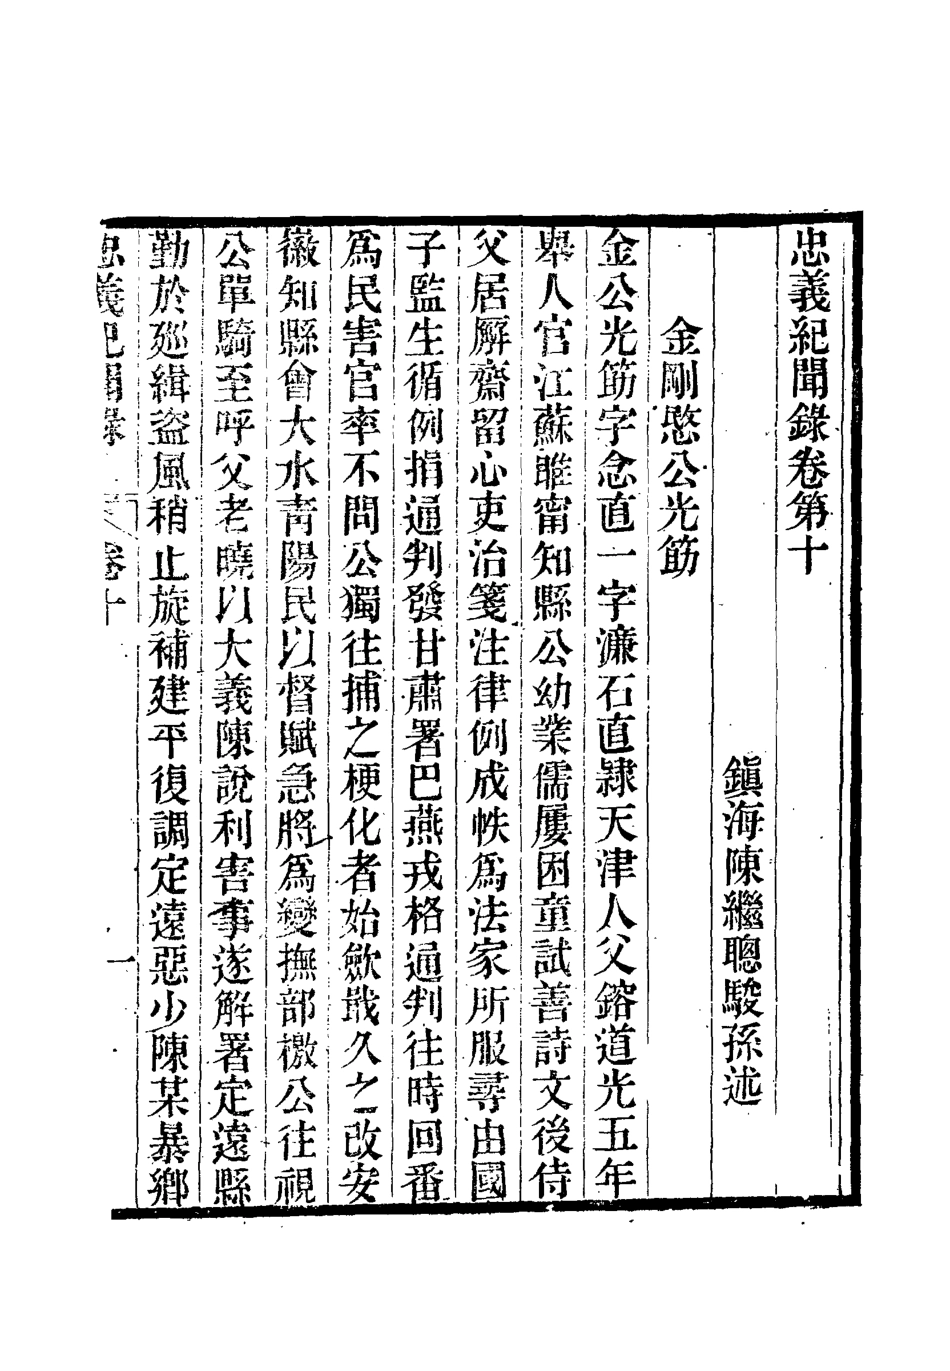 忠義紀聞錄卷第十
鎮海陳繼聰駿孫述
金剛愍公光筯
金公光筯字念直一字濂石直隷天津人父鎔道光五年
舉人官江蘇睢甯知縣公幼業儒屢困童試善詩文後侍
父居廨齋留心吏治箋注律例成帙爲法家所服尋由國
子監生循例捐通判發甘肅署巴燕戎格通判往時回番
爲民害官率不問公獨往捕之梗化者始歛戢久之改安
徽知縣會大水青陽民以督賦急將爲變撫部檄公往視
公單騎至呼父老曉以大義陳說利害事遂解署定遠縣
勤於廵緝盜風稍止旋補建平復調定遠惡少陳某暴鄉
忠義紀聞錄 卷十 一